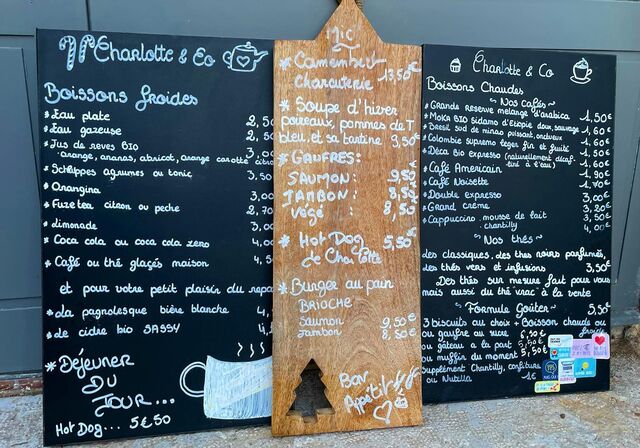 Charlotte & Co
Boissons froides
* Eau plate 2,5
* Eau gazeuse 2,5
* Jus de reves BIO 3,5
orange, ananas, abricot, orange carotte citron
* Schweppes agrumes ou tonic 3,50
* Orangina 3,00
* Fuze tea citron ou peche 2,70
* limonade 3,00
* Coca cola ou coca cola zero 4,0
* Café ou thé glacés maison 4,50
et pour votre petit plaisir du repas
* la pagnolesque bière blanche 4,
* de cidre bio SASSY 4,
* Déjeuner
Du
Jour...
Hot Dog... 5€50
MIC
* Camembert
Charcuterie 13,50€
* Soupe d'hiver
poireaux, pommes de T
bleu, et sa tartine 9,50€
* GAUFRES:
SAUMON: 9,50
JAMBON: 8,50
Végé: 8,50
* Hot Dog 5,50€
de Charlotte
* Burger au pain
BRIOCHE
Saumon 9,50€
Jambon 8,50€
Bon
Appétit!!
Charlotte & Co
Boissons Chaudes
~ Nos cafés ~
* Grande reserve mélange d'arabica 1,50€
* Moka BIO Sidamo d'Etiopie doux, sauvage 1,60€
* Bresil sud de minas puissant, onctueux 1,60€
* Colombie supremo léger fin et fruité 1,60€
* Déca Bio expresso (naturellement décaf- 1,50€
tiné à l'eau)
* Café Americain 1,90€
* Café Noisette 1,70€
* Double expresso 3,00€
* Grand crème 3,20€
* Cappuccino mousse de lait 3,50€
chantilly 4,00€
~ Nos thés ~
des classiques, des thes noirs parfumés,
des thés verts et infusions 3,50€
Des thés sur mesure fait pour vous
mais aussi du thé vrac à la vente
~ Formule Goûter ~ 5,50€
3 biscuits au choix + Boisson chaude ou froide
ou gaufre au sucre 6,50€
ou gâteau à la part 5,50€
ou muffin du moment 5,50€
Supplément Chantilly, confiture
ou Nutella 1€